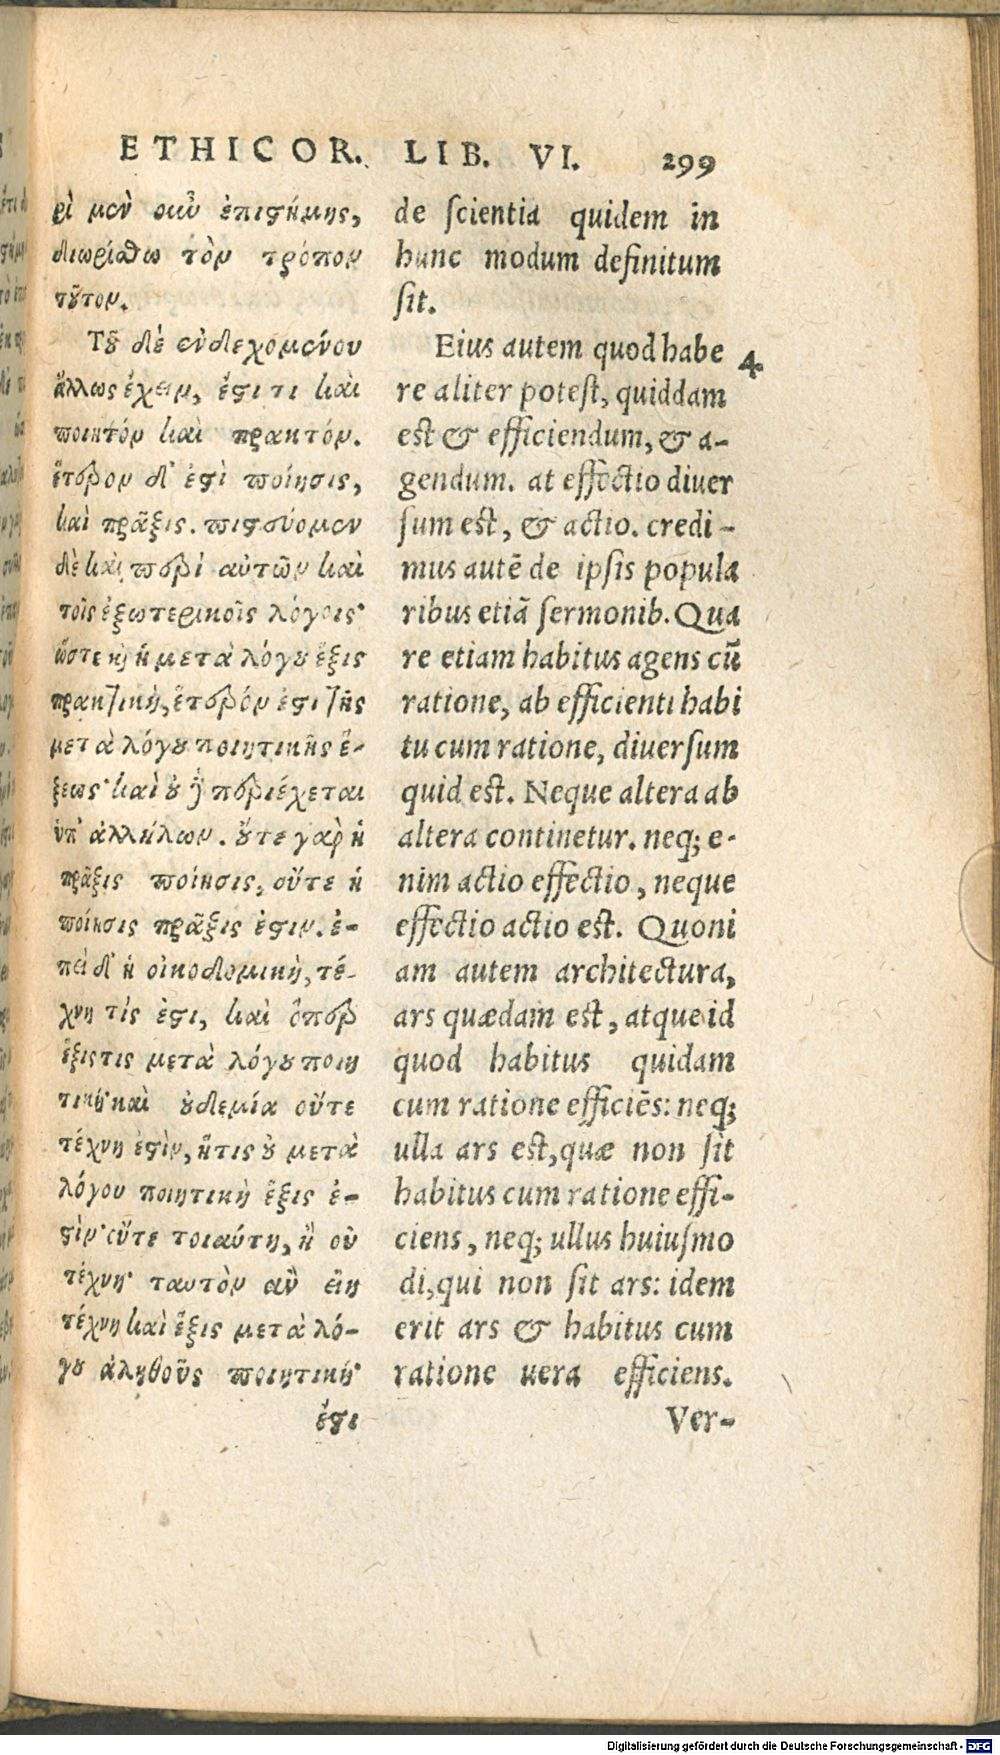 ETHICOR. LIB. VI. 299
ρὶ μὲν οὖν ἐπιστήμης,
διωρίσθω τὸν τρόπον
τοῦτον.
Τοῦ δὲ ἐνδεχομένου
ἄλλως ἔχειν, ἔστι τι καὶ
ποιητόν καὶ πρακτόν.
ἕτερον δ' ἐστὶ ποίησις,
καὶ πρᾶξις. πιστεύομεν
δὲ καὶ περὶ αὐτῶν καὶ
τοῖς ἐξωτερικοῖς λόγοις·
ὥστε καὶ ἡ μετὰ λόγου ἕξις
πρακτικὴ, ἕτερόν ἐστι τῆς
μετὰ λόγου ποιητικῆς ἕ-
ξεως· καὶ οὐ περιέχεται
ὑπ' ἀλλήλων. οὔτε γὰρ ἡ
πρᾶξις ποίησις, οὔτε ἡ
ποίησις πρᾶξις ἐστιν. ἐ-
πεὶ δ' ἡ οἰκοδομικὴ, τέ-
χνη τίς ἐστι, καὶ ὅπερ
ἕξις τις μετὰ λόγου ποιη
τικὴ· καὶ οὐδεμία οὔτε
τέχνη ἐστὶν, ἥτις οὐ μετὰ
λόγου ποιητικὴ ἕξις ἐ-
στὶν· οὔτε τοιαύτη, ἣ οὐ
τέχνη· ταυτὸν ἂν εἴη
τέχνη καὶ ἕξις μετὰ λό-
γου ἀληθοῦς ποιητική·
ἔστι
de scientia quidem in
hunc modum definitum
sit.
Eius autem quod habe 4
re aliter potest, quiddam
est & efficiendum, & a-
gendum. at effectio diuer
sum est, & actio. credi-
mus autē de ipsis popula
ribus etiā sermonib. Qua
re etiam habitus agens cū
ratione, ab efficienti habi
tu cum ratione, diuersum
quid est. Neque altera ab
altera continetur. neq; e-
nim actio effectio, neque
effectio actio est. Quoni
am autem architectura,
ars quædam est, atque id
quod habitus quidam
cum ratione efficiēs: neq;
ulla ars est, quæ non sit
habitus cum ratione effi-
ciens, neq; ullus huiusmo
di, qui non sit ars: idem
erit ars & habitus cum
ratione uera efficiens.
Ver-
Digitalisierung gefördert durch die Deutsche Forschungsgemeinschaft - DFG